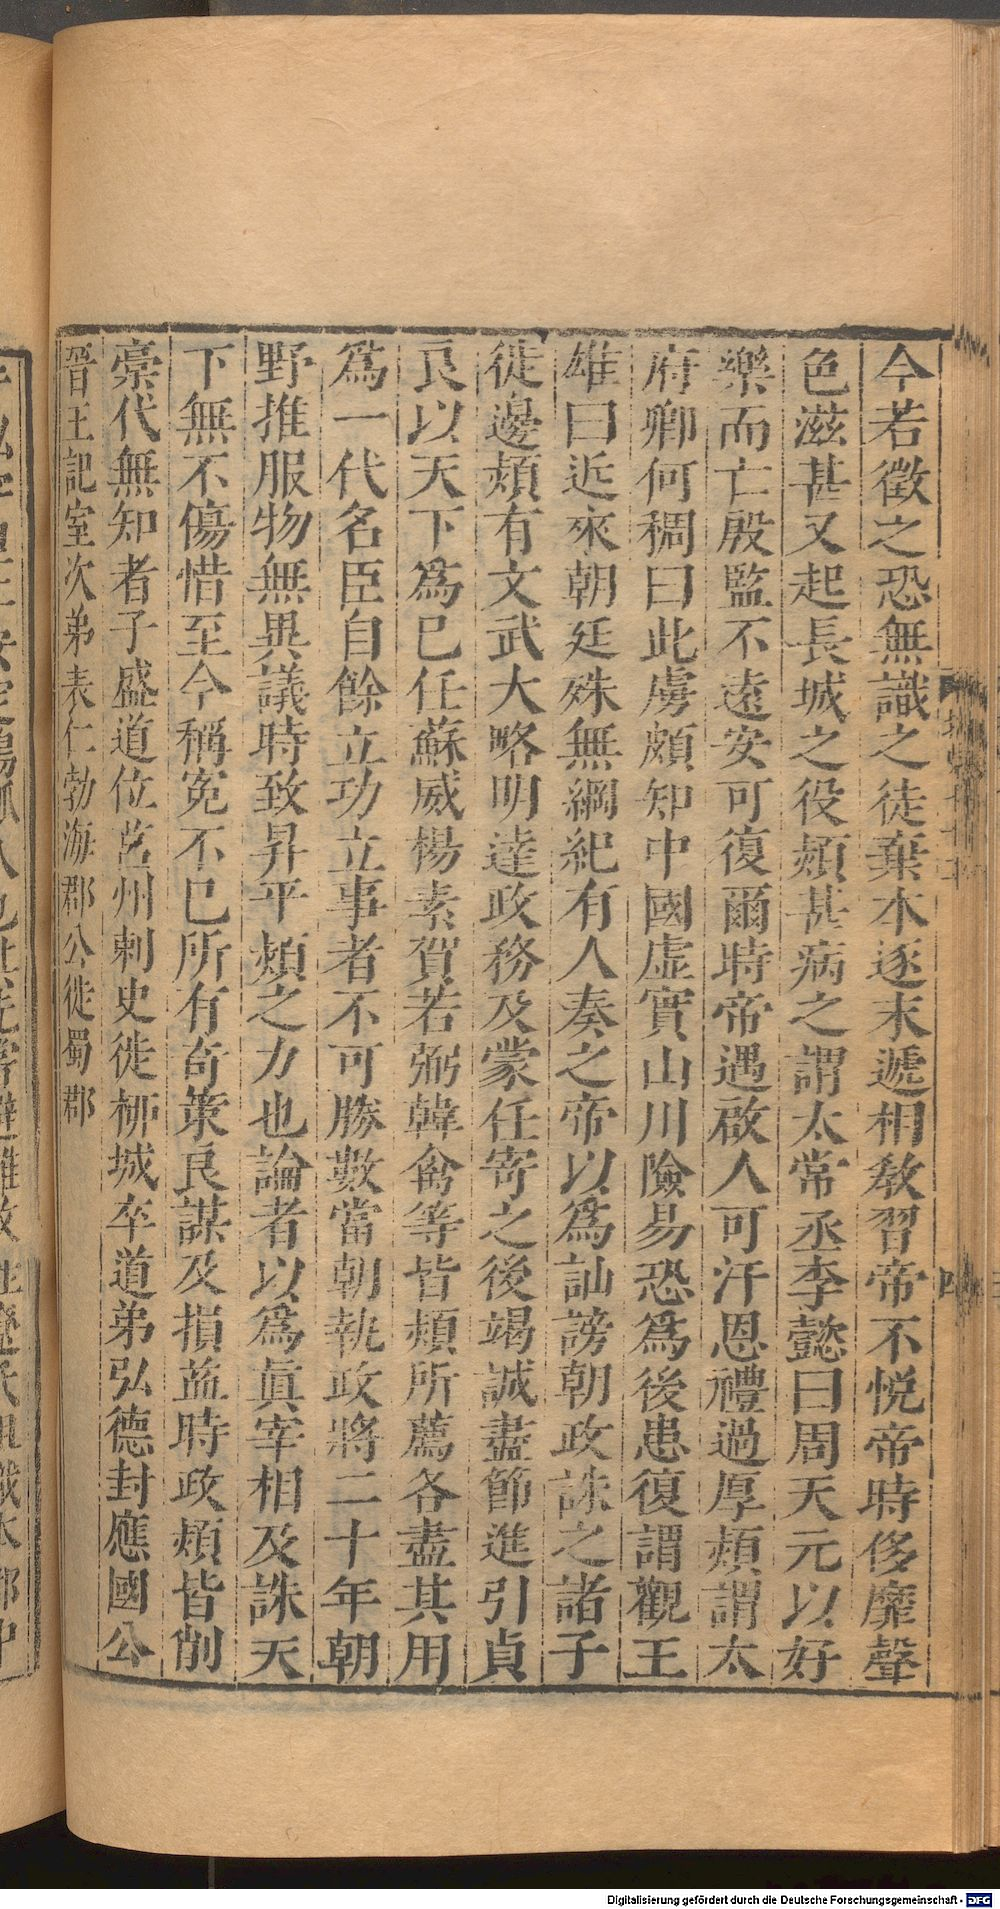 今若徵之恐無識之徒棄本逐末遞相敎習帝不悅帝時侈靡聲
色滋甚又起長城之役熲甚病之謂太常丞李懿曰周天元以好
樂而亡殷監不遠安可復爾時帝遇啟人可汗恩禮過厚熲謂太
府卿何稠曰此虜頗知中國虛實山川險易恐爲後患復謂觀王
雄曰近來朝廷殊無綱紀有人奏之帝以爲訕謗朝政誅之諸子
徙邊熲有文武大略明達政務及蒙任寄之後竭誠盡節進引貞
良以天下爲已任蘇威楊素賀若弼韓禽等皆熲所薦各盡其用
爲一代名臣自餘立功立事者不可勝數當朝執政將二十年朝
野推服物無異議時致昇平熲之力也論者以爲眞宰相及誅天
下無不傷惜至今稱冤不已所有奇策良謀及損益時政熲皆削
稾代無知者子盛道位莒州刺史徙柳城卒道弟弘德封應國公
晉王記室次弟表仁勃海郡公徙蜀郡
四
Digitalisierung gefördert durch die Deutsche Forschungsgemeinschaft - DFG